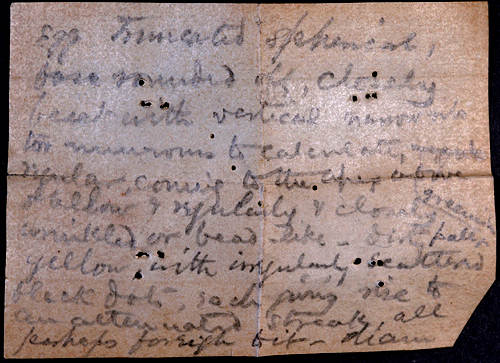 Egg Truncated spherical,
base rounded off, closely
beset with vertical narrow
too numerous to calculate,
coming to the apex above
shallow & regularly & closely
wrinkled or bead like - dirty pale
yellow with irregularly scattered
black dots, each giving rise to
an attenuated streak, all
perhaps foreign bits - diam